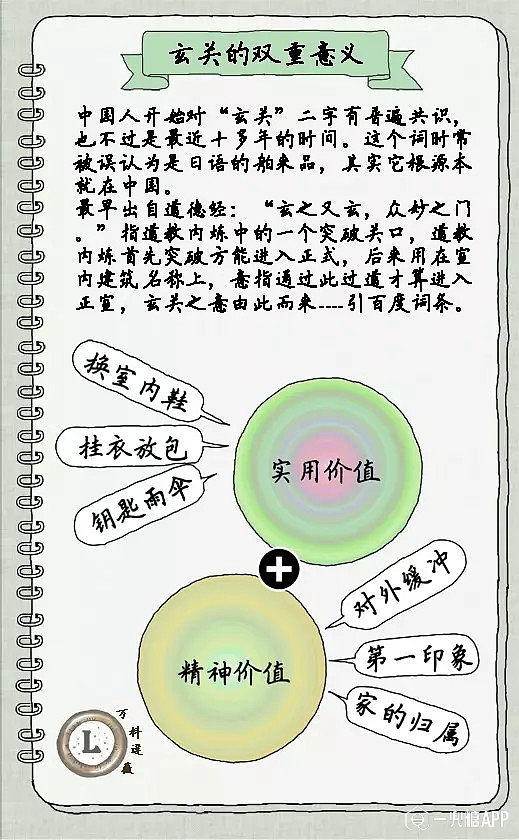 玄关的双重意义
中国人开始对“玄关”二字有普遍共识，
也不过是最近十多年的时间。这个词时常
被误认为是日语的舶来品，其实它根源本
就在中国。
最早出自道德经：“玄之又玄，众妙之门
。”指道教内炼中的一个突破关口，道教
内炼首先突破方能进入正式，后来用在室
内建筑名称上，意指通过此过道才算进入
正室，玄关之意由此而来----引百度词条。
换室内鞋
挂衣放包
钥匙雨伞
实用价值
+
对外缓冲
第一印象
家的归属
精神价值
L
万科
一兜糖APP